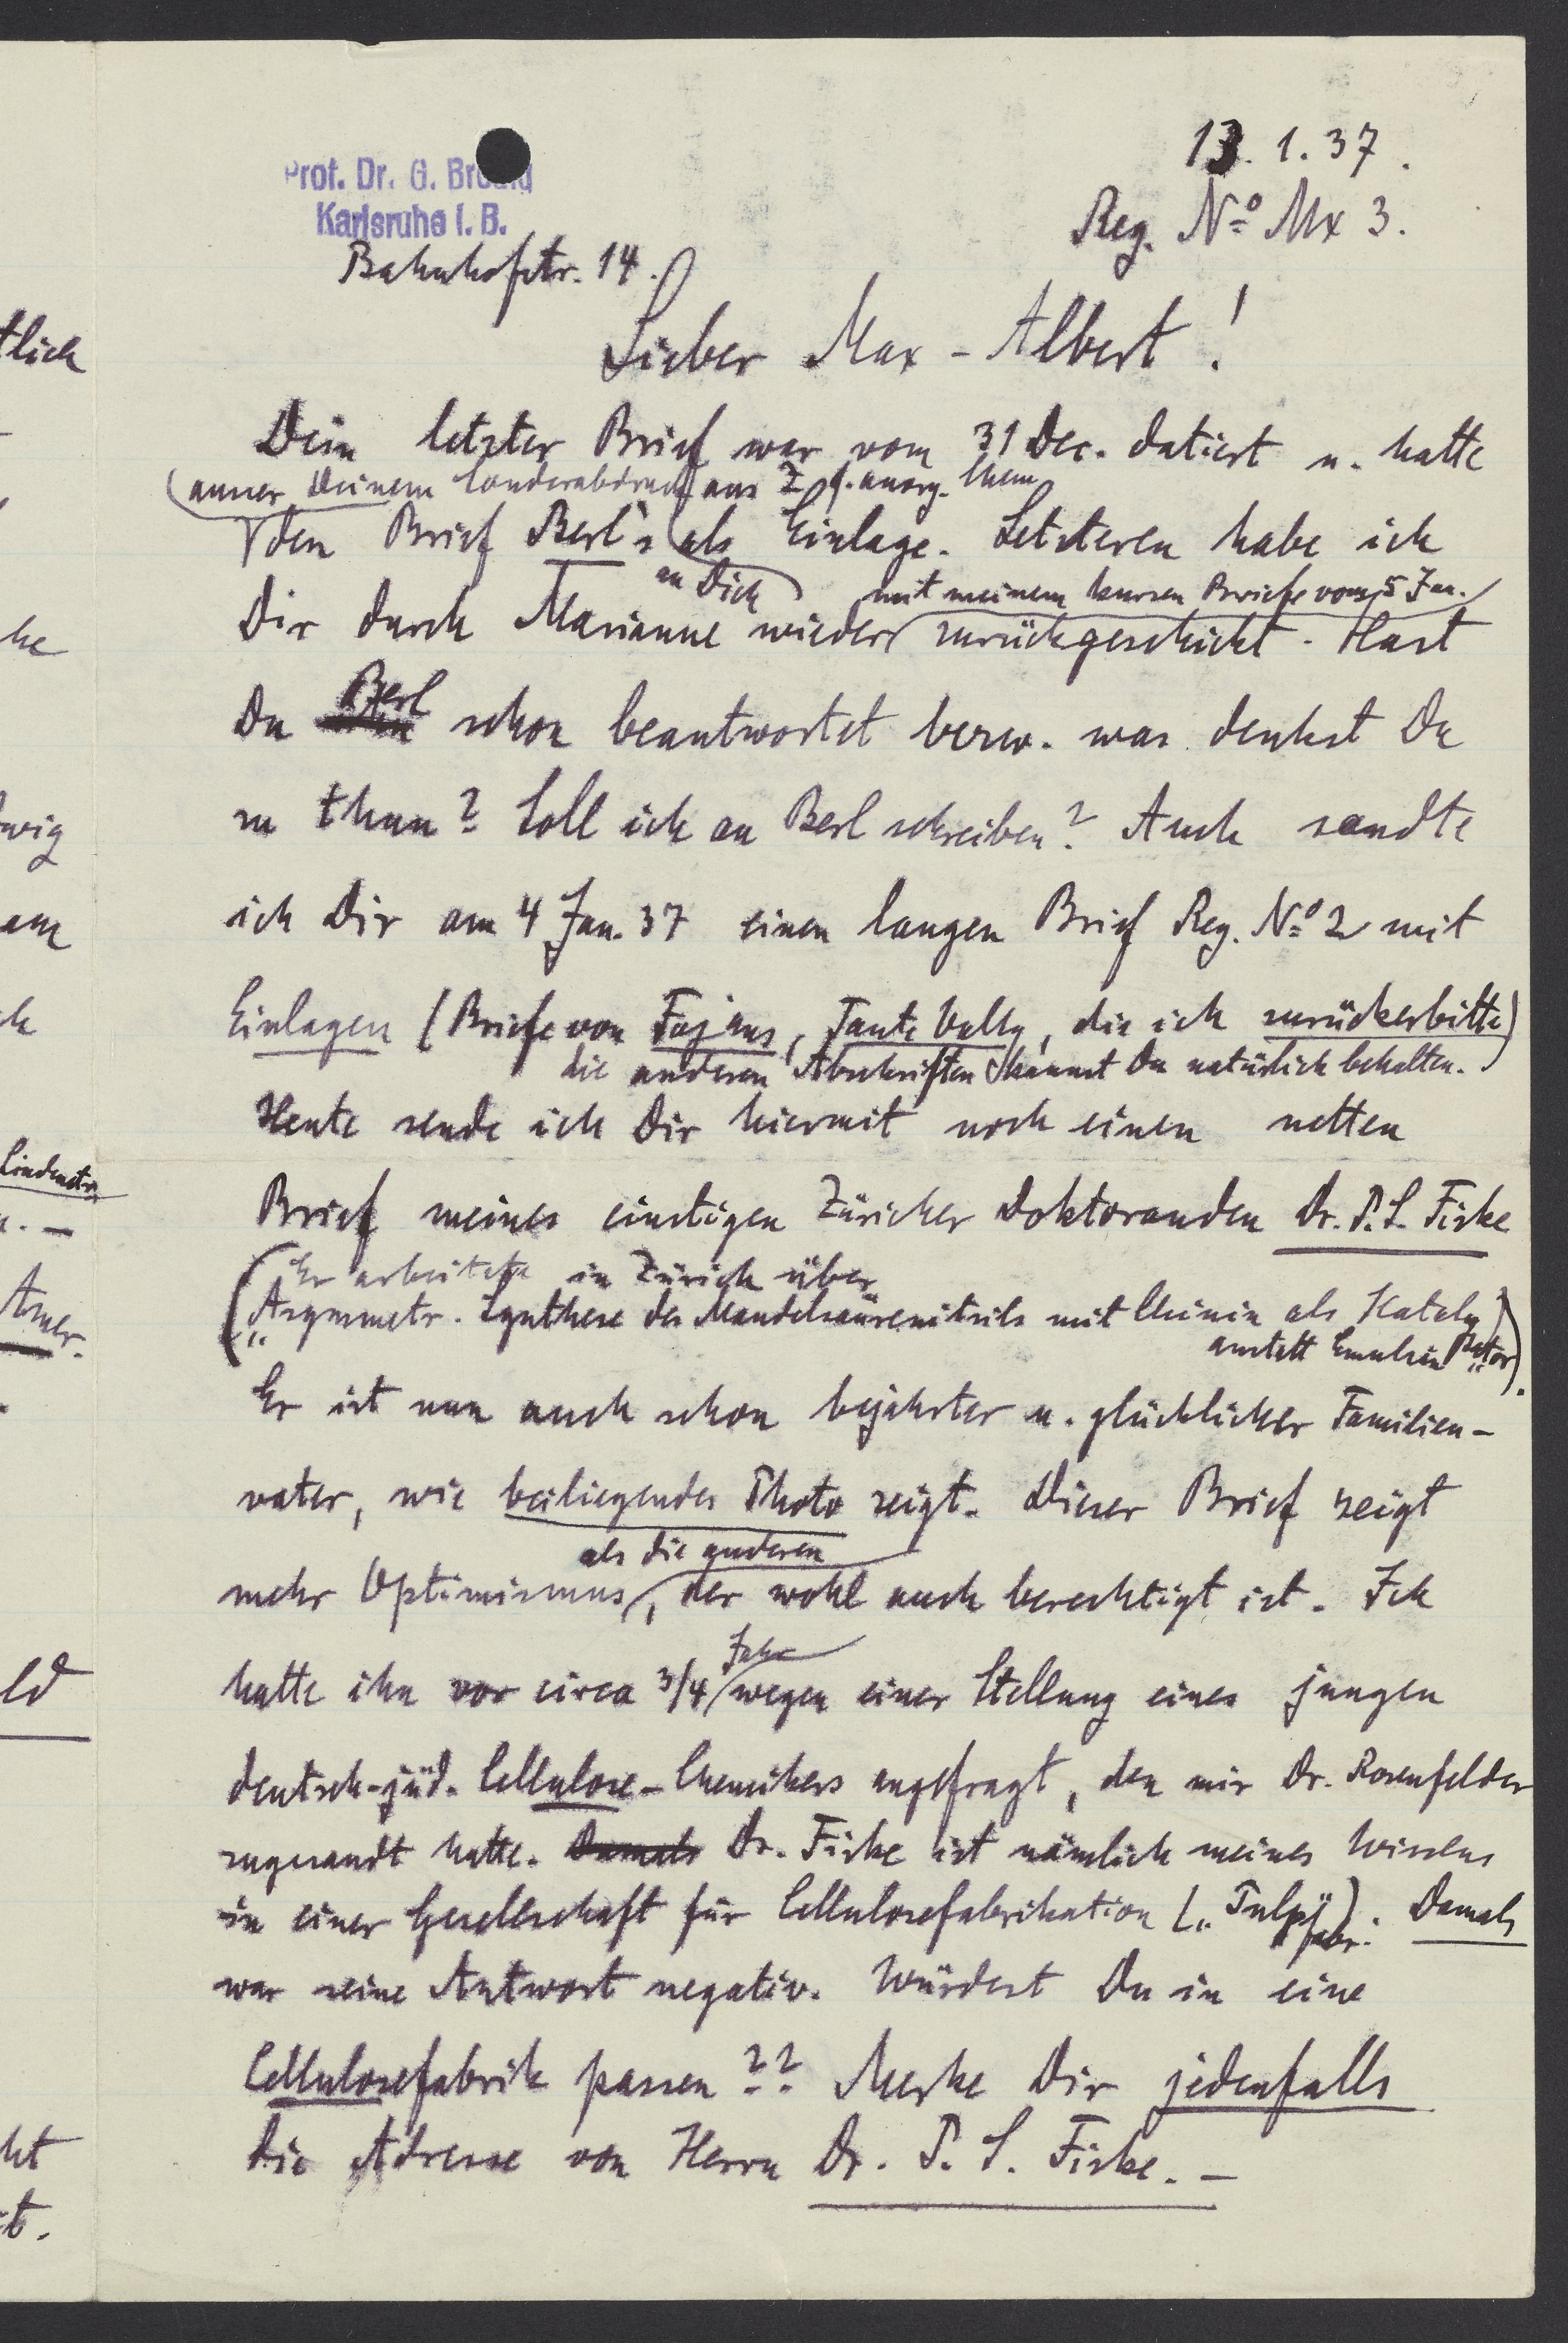 Prof. Dr. G. Bredig
Karlsruhe i. B.
Bahnhofstr. 14.
13. 1. 37.
Reg. No Mx 3.
Lieber Max-Albert!
Dein letzter Brief war vom 31 Dec. datiert u. hatte
(ausser Deinem Sonderabdruck aus Z. f. anorg. Chem
den Brief Berl's an Dich) als Einlage. Letzteren habe ich
Dir durch Marianne wieder mit meinem kurzen Briefe vom 5 Jan. zurückgeschickt. Hast
Du Berl schon beantwortet bezw. was denkst Du
zu thun? Soll ich an Berl schreiben? Auch sandte
ich Dir am 4 Jan. 37 einen langen Brief Reg. No 2 mit
Einlagen (Briefe von Fajans, Tante Vally, die ich zurückerbitte)
die anderen Abschriften kannst Du natürlich behalten.
Heute sende ich Dir hiermit noch einen netten
Brief meines einstigen Züricher Doktoranden Dr. P. S. Fiske
(Er arbeitete in Zürich über
„Asymmetr. Synthese des Mandelsäurenitrils mit Chinin als Kataly
sator“ anstatt Emulsin).
Er ist nun auch schon bejahrter u. glücklicher Familien-
vater, wie beiliegendes Photo zeigt. Dieser Brief zeigt
mehr Optimismus als die anderen, der wohl auch berechtigt ist. Ich
hatte ihn vor circa 3/4 Jahr wegen einer Stellung eines jungen
deutsch-jüd. Cellulose-Chemikers angefragt, den mir Dr. Rosenfelder
zugesandt hatte. Damals Dr. Fiske ist nämlich meines Wissens
in einer Gesellschaft für Cellulosefabrikation („Pulp“fabr.). Damals
war seine Antwort negativ. Würdest Du in eine
Cellulosefabrik passen?? Merke Dir jedenfalls
die Adresse von Herrn Dr. P. S. Fiske. —
tlich
he
wig
am
ch
Lindenstr.
Amer.
ld
ht
t.